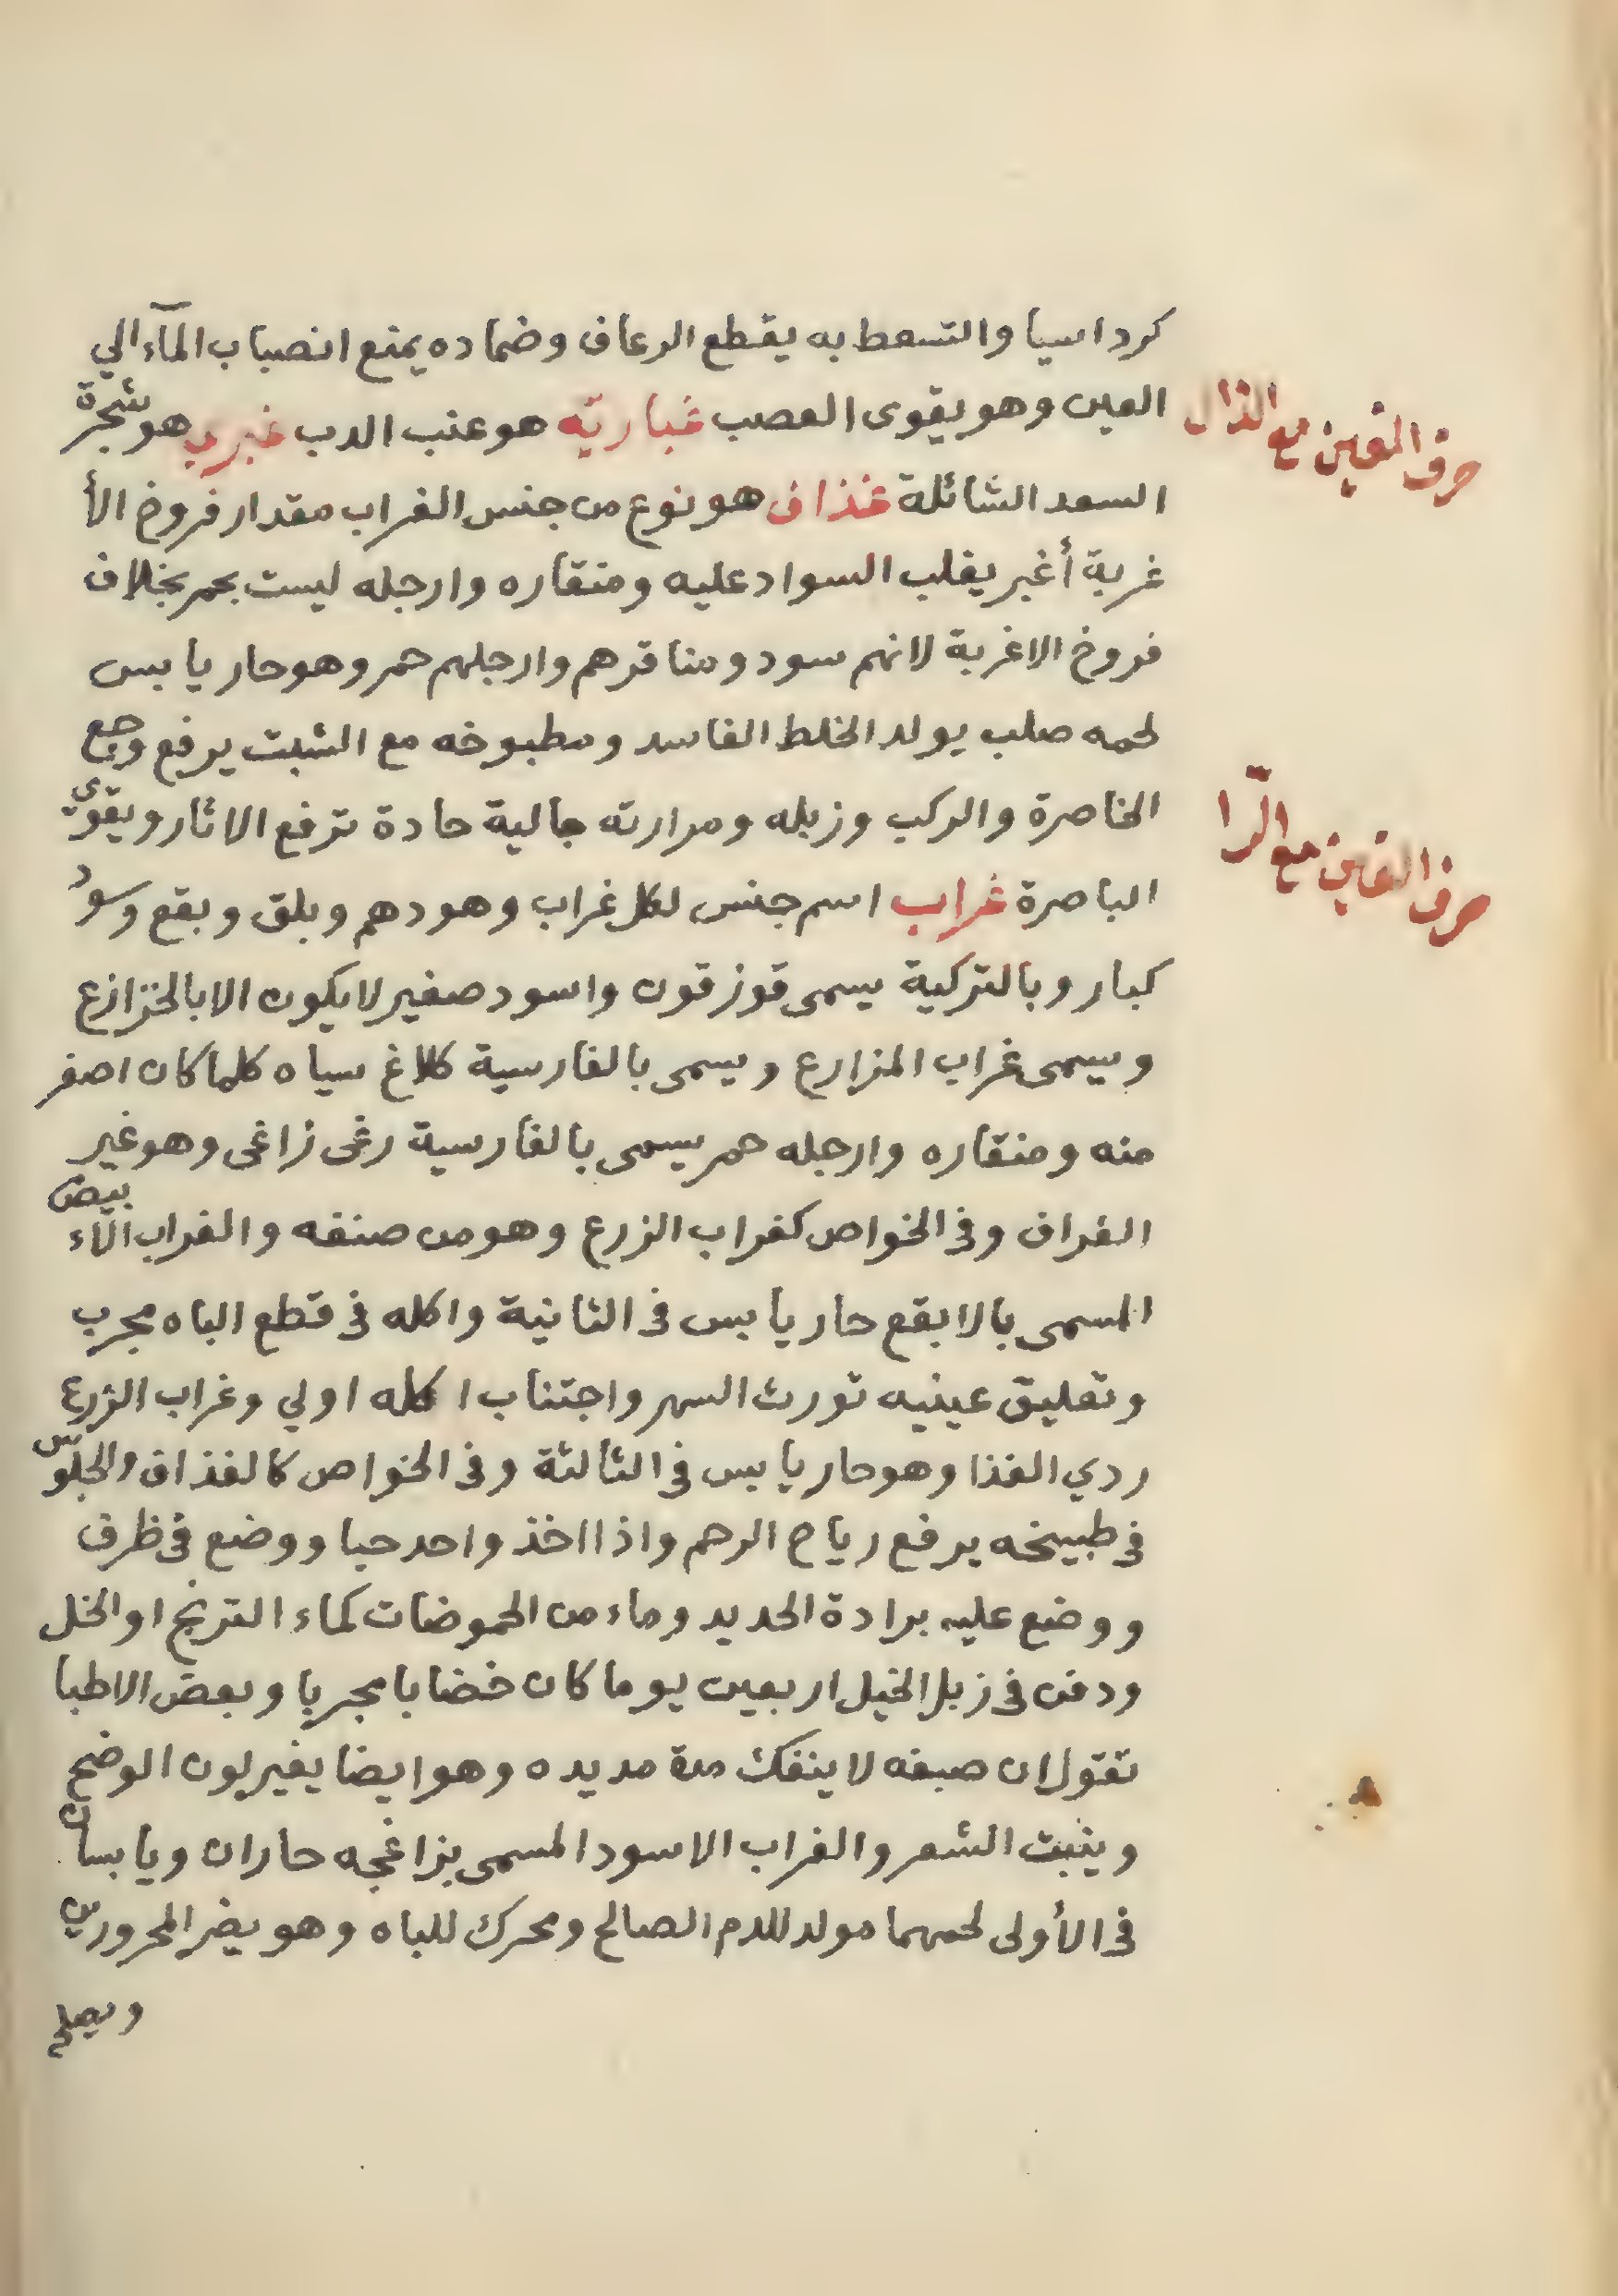 كرداسيا والتسعط به يقطع الرعاف وضماده يمنع انصباب المآء الي
العين وهو يقوى العصب غباريّه هو عنب الدب غبرب هو شجرة
حرف الغين مع الذال
السعد الشائلة غذاف هو نوع من جنس الغراب مقدار فروخ الأ
غربة أغبر يغلب السواد عليه ومنقاره وارجله ليست بحمر بخلاف
فروخ الاغربة لانهم سود ومناقرهم وارجلهم حمر وهو حار يابس
لحمه صلب يولد الخلط الفاسد ومطبوخه مع الشبت يرفع وجع
الخاصرة والركب وزبله ومرارته جالية حادة ترفع الاثار ويقوّي
حرف الغين مع الرّا
الباصرة غراب اسم جنس لكل غراب وهو دهم وبلق وبقع وسود
كبار وبالتركية يسمى قوزقون واسود صغير لا يكون الا بالخزازع
ويسمى غراب المزارع ويسمى بالفارسية كلاغ سياه كلما كان اصغر
منه ومنقاره وارجله حمر يسمى بالفارسية رغى زاغى وهو غير
الغراف وفى الخواص كغراب الزرع وهو من صنفه والغراب الاء بيض
المسمى بالابقع حار يابس فى الثانية واكله فى قطع الباه مجرب
وتعليق عينيه تورث السهر واجتناب اكله اولي وغراب الزرع
ردي الغذا وهو حار يابس فى الثالثة وفى الخواص كالغذاف والجلوس
فى طبيخه يرفع رياح الرحم واذا اخذ واحد حيا ووضع فى ظرف
ووضع عليه برادة الحديد وماء من الحموضات كماء الترنج او الخل
ودفن فى زبل الخيل اربعين يوما كان خضابا مجربا وبعض الاطبا
تقول ان صبغه لا ينفك مدة مديده وهو ايضا يغير لون الوضح
وينبت الشعر والغراب الاسود المسمى بزاغجه حاران ويابسان
فى الأولى لحمهما مولد للدم الصالح ومحرك للباه وهو يضر المحرورين
ويصلح